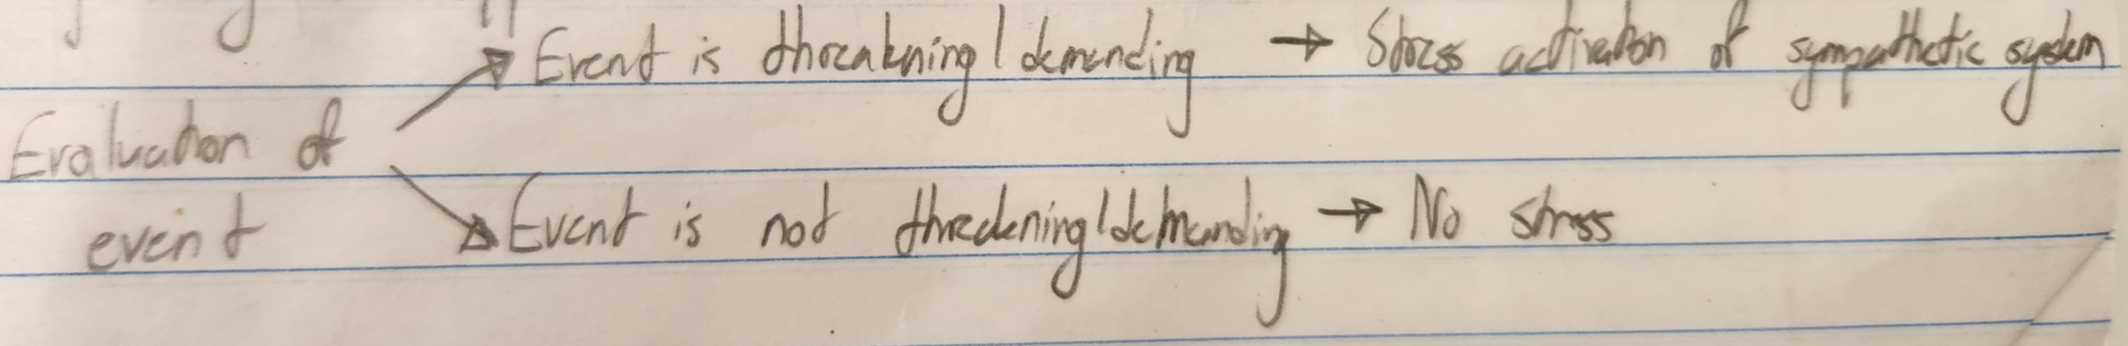 Event is threatening / demanding → Stress activation of sympathetic system
Evaluation of
event
Event is not threatening / demanding → No stress